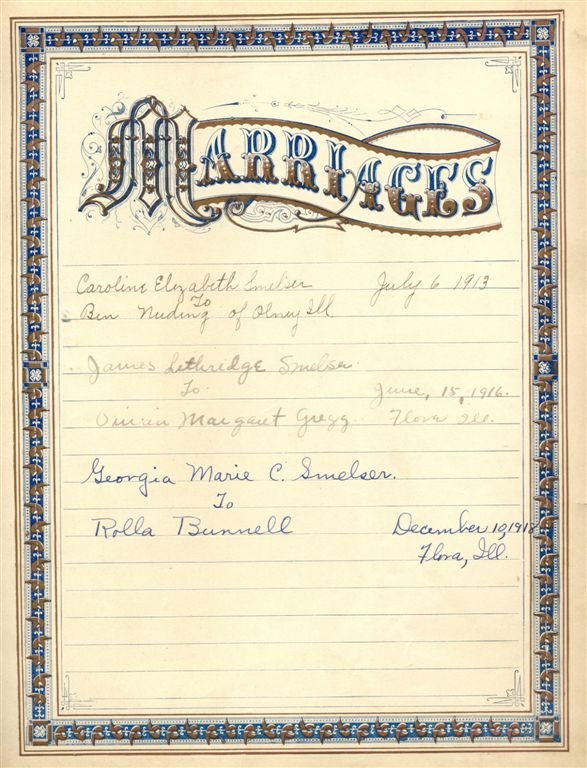 MARRIAGES
Caroline Elizabeth Smelser July 6 1913
To
Ben Nuding of Olney Ill
James Lethridge Smelser
To June, 15, 1916.
Margaret Gregg Flora Ill.
Georgia Marie C. Smelser.
To
Rolla Bunnell December 10, 1918
Flora, Ill.